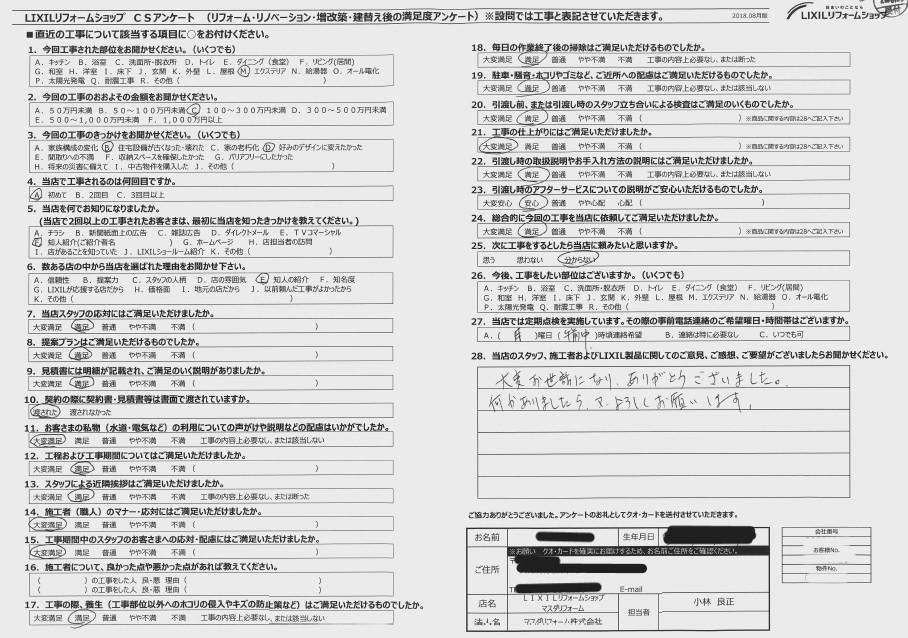 LIXILリフォームショップ　ＣＳアンケート　（リフォーム・リノベーション・増改築・建替え後の満足度アンケート）※設問では工事と表記させていただきます。
2018.08月版
住まいのことなら
LIXILリフォームショップ
■直近の工事について該当する項目に○をお付けください。
1．今回工事された部位をお聞かせください。（いくつでも）
A．キッチン　B．浴室　C．洗面所・脱衣所　D．トイレ　E．ダイニング（食堂）　F．リビング(居間)
G．和室　H．洋室　I．床下　J．玄関　K．外壁　L．屋根　M．エクステリア　N．給湯器　O．オール電化
P．太陽光発電　Q．耐震工事　R．その他（　　　）
2．今回の工事のおおよその金額をお聞かせください。
A．５０万円未満　B．５０～１００万円未満　C．１００～３００万円未満　D．３００～５００万円未満
E．５００～１,０００万円未満　F．１,０００万円以上
3．今回の工事のきっかけをお聞かせください。（いくつでも）
A．家族構成の変化　B．住宅設備が古くなった・壊れた　C．家の老朽化　D．好みのデザインに変えたかった
E．間取りへの不満　F．収納スペースを確保したかった　G．バリアフリーにしたかった
H．将来の災害に備えて　I．中古物件を購入した　J．その他（　　　）
4．当店で工事されるのは何回目ですか。
A．初めて　B．2回目　C．3回目以上
5．当店を何でお知りになりましたか。
（当店で2回以上の工事されたお客さまは、最初に当店を知ったきっかけを教えてください。）
A．チラシ　B．新聞紙面上の広告　C．雑誌広告　D．ダイレクトメール　E．ＴＶコマーシャル
F．知人紹介(ご紹介者名　　　）　G．ホームページ　H．店担当者の訪問
I．店があることを知っていた　J．LIXILショールーム紹介　K．その他（　　　）
6．数ある店の中から当店を選ばれた理由をお聞かせ下さい。
A．信頼性　B．提案力　C．スタッフの人柄　D．店の雰囲気　E．知人の紹介　F．知名度
G．LIXILが応援する店だから　H．価格面　I．地元の店だから　J．以前頼んだ工事がよかったから
K．その他（　　　）
7．当店スタッフの応対にはご満足いただけましたか。
大変満足　満足　普通　やや不満　不満（　　　）
8．提案プランはご満足いただけるものでしたか。
大変満足　満足　普通　やや不満　不満（　　　）
9．見積書には明細が記載され、ご満足のいく説明がありましたか。
大変満足　満足　普通　やや不満　不満（　　　）
10．契約の際に契約書・見積書等は書面で渡されていますか。
渡された　渡されなかった
11．お客さまの私物（水道・電気など）の利用についての声がけや説明などの配慮はいかがでしたか。
大変満足　満足　普通　やや不満　不満　工事の内容上必要なし、または該当しない
12．工程および工事期間についてはご満足いただけましたか。
大変満足　満足　普通　やや不満　不満（　　　）
13．スタッフによる近隣挨拶はご満足いただけましたか。
大変満足　満足　普通　やや不満　不満　工事の内容上必要なし、または断った
14．施工者（職人）のマナー・応対にはご満足いただけましたか。
大変満足　満足　普通　やや不満　不満（　　　）
15．工事期間中のスタッフのお客さまへの応対・配慮にはご満足いただけましたか。
大変満足　満足　普通　やや不満　不満（　　　）
16．施工者について、良かった点や悪かった点があれば教えてください。
（　　　）の工事をした人　良・悪　理由（　　　）
（　　　）の工事をした人　良・悪　理由（　　　）
17．工事の際、養生（工事部位以外へのホコリの侵入やキズの防止策など）はご満足いただけるものでしたか。
大変満足　満足　普通　やや不満　不満　工事の内容上必要なし、または該当しない
18．毎日の作業終了後の掃除はご満足いただけるものでしたか。
大変満足　満足　普通　やや不満　不満　工事の内容上必要なし、または断った
19．駐車・騒音・ホコリやゴミなど、ご近所への配慮はご満足いただけましたか。
大変満足　満足　普通　やや不満　不満　工事の内容上必要なし、または該当しない
20．引渡し前、または引渡し時のスタッフ立ち合いによる検査はご満足のいくものでしたか。
大変満足　満足　普通　やや不満　不満（　　　）※商品に関する内容は28へご記入下さい
21．工事の仕上がりにはご満足いただけましたか。
大変満足　満足　普通　やや不満　不満（　　　）※商品に関する内容は28へご記入下さい
22．引渡し時の取扱説明やお手入れ方法の説明にはご満足いただけましたか。
大変満足　満足　普通　やや不満　不満　工事の内容上必要なし、または該当しない
23．引渡し時のアフターサービスについての説明がご安心いただけるものでしたか。
大変安心　安心　普通　やや心配　心配（　　　）
24．総合的に今回の工事を当店に依頼してご満足いただけましたか。
大変満足　満足　普通　やや不満　不満（　　　）※商品に関する内容は28へご記入下さい
25．次に工事をするとしたら当店に頼みたいと思いますか。
思う　思わない　分からない
26．今後、工事をしたい部位はございますか。（いくつでも）
A．キッチン　B．浴室　C．洗面所・脱衣所　D．トイレ　E．ダイニング（食堂）　F．リビング(居間)
G．和室　H．洋室　I．床下　J．玄関　K．外壁　L．屋根　M．エクステリア　N．給湯器　O．オール電化
P．太陽光発電　Q．耐震工事　R．その他（　　　）
27．当店では定期点検を実施しています。その際の事前電話連絡のご希望曜日・時間帯はございますか。
A．（　月　）曜日（　午前中　）時頃連絡希望　B．連絡は特に必要なし　C．いつでも可
28．当店のスタッフ、施工者およびLIXIL製品に関してのご意見、ご感想、ご要望がございましたらお聞かせください。
大変お世話になり、ありがとうございました。
何かありましたら、又、よろしくお願いします。
ご協力ありがとうございました。アンケートのお礼としてクオ・カードを送付させていただきます。
お名前
生年月日
※お願い　クオ・カードを確実にお届けするため、お名前ご住所をご確認ください。
ご住所
〒
E-mail
店名
ＬＩＸＩＬリフォームショップ
マスダリフォーム
担当者
小林　良正
法人名
マスダリフォーム株式会社
会社番号
お客様No.
物件No.